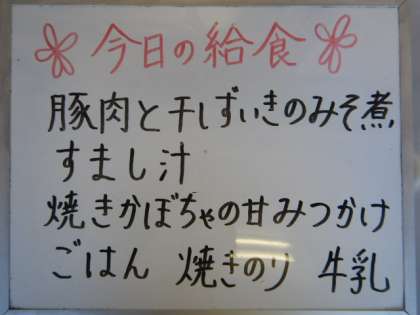 今日の給食
豚肉と干しずいきのみそ煮
すまし汁
焼きかぼちゃの甘みつかけ
ごはん 焼きのり 牛乳